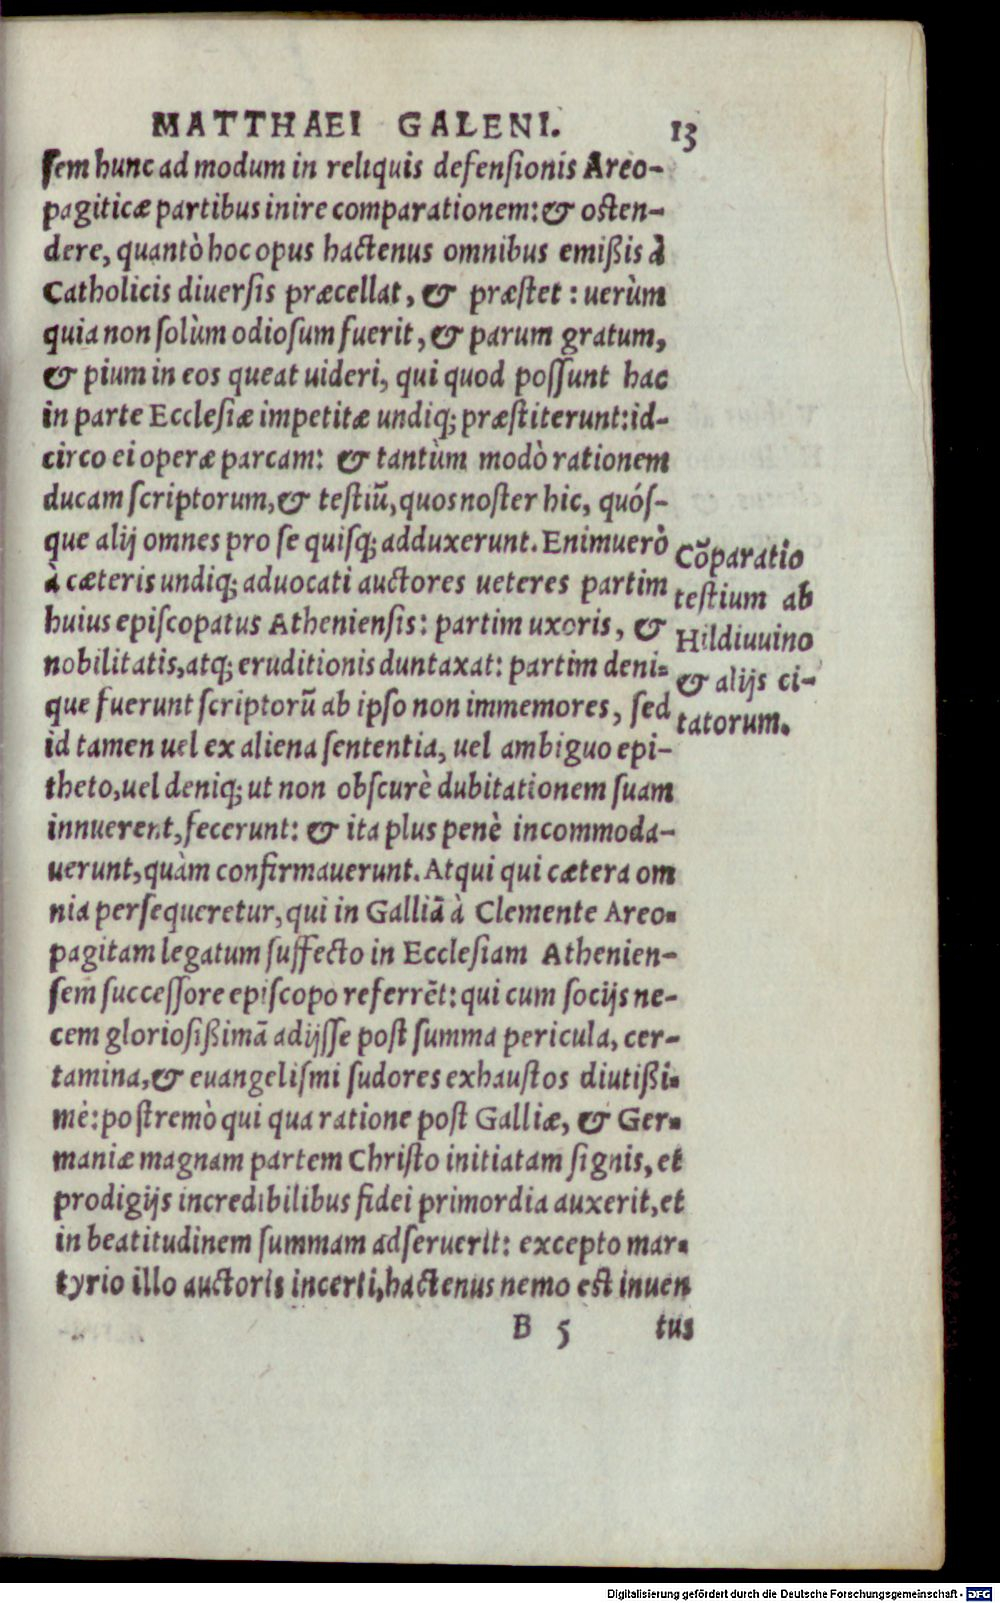 MATTHAEI GALENI. 13
sem hunc ad modum in reliquis defensionis Areo-
pagiticæ partibus inire comparationem: & osten-
dere, quantò hoc opus hactenus omnibus emißis à
Catholicis diuersis præcellat, & præstet: uerùm
quia non solùm odiosum fuerit, & parum gratum,
& pium in eos queat uideri, qui quod possunt hac
in parte Ecclesiæ impetitæ undiq; præstiterunt: id-
circo ei operæ parcam: & tantùm modò rationem
ducam scriptorum, & testiũ, quos noster hic, quós-
que alij omnes pro se quisq; adduxerunt. Enimuerò
à cæteris undiq; aduocati auctores ueteres partim
huius episcopatus Atheniensis: partim uxoris, &
nobilitatis, atq; eruditionis duntaxat: partim deni-
que fuerunt scriptorũ ab ipso non immemores, sed
id tamen uel ex aliena sententia, uel ambiguo epi-
theto, uel deniq; ut non obscurè dubitationem suam
innuerent, fecerunt: & ita plus penè incommoda-
uerunt, quàm confirmauerunt. Atqui qui cætera om
nia persequeretur, qui in Galliã à Clemente Areo-
pagitam legatum suffecto in Ecclesiam Athenien-
sem successore episcopo referrẽt: qui cum socijs ne-
cem gloriosißimã adijsse post summa pericula, cer-
tamina, & euangelismi sudores exhaustos diutißi-
mè: postremò qui qua ratione post Galliæ, & Ger-
maniæ magnam partem Christo initiatam signis, et
prodigijs incredibilibus fidei primordia auxerit, et
in beatitudinem summam adseruerit: excepto mar-
tyrio illo auctoris incerti, hactenus nemo est inuen
B 5 tus
Cõparatio
testium ab
Hildiuuino
& alijs ci-
tatorum.
Digitalisierung gefördert durch die Deutsche Forschungsgemeinschaft - DFG